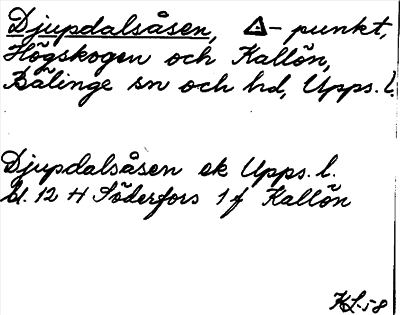 Djupdalsåsen, △-punkt,
Högskogen och Kallön,
Bälinge sn och hd, Upps. l.
Djupdalsåsen ek Upps. l.
bl. 12 H Söderfors 1 f Kallön
KL-58